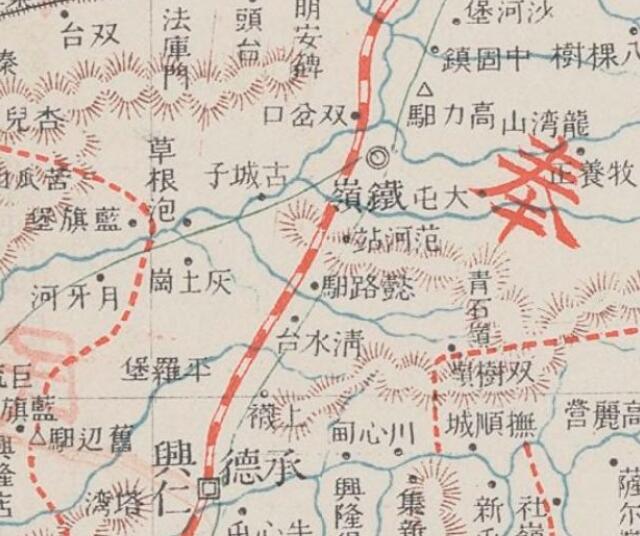 双台
法庫門
頭台
明安碑
沙河堡
中固鎭
八棵樹
双岔口
高力馹
龍湾山
牧養正
杏兒
草根泡
古城子
鐵嶺
大屯
奉
藍旗堡
范河站
灰土崗
月牙河
懿路馹
青石嶺
清水台
平羅堡
双樹嶺
藍旗
上襪
高麗营
舊辺馹
川心甸
撫順城
承德
興仁
塔湾
興隆
集新
新
社嶺
薩尔
興隆店